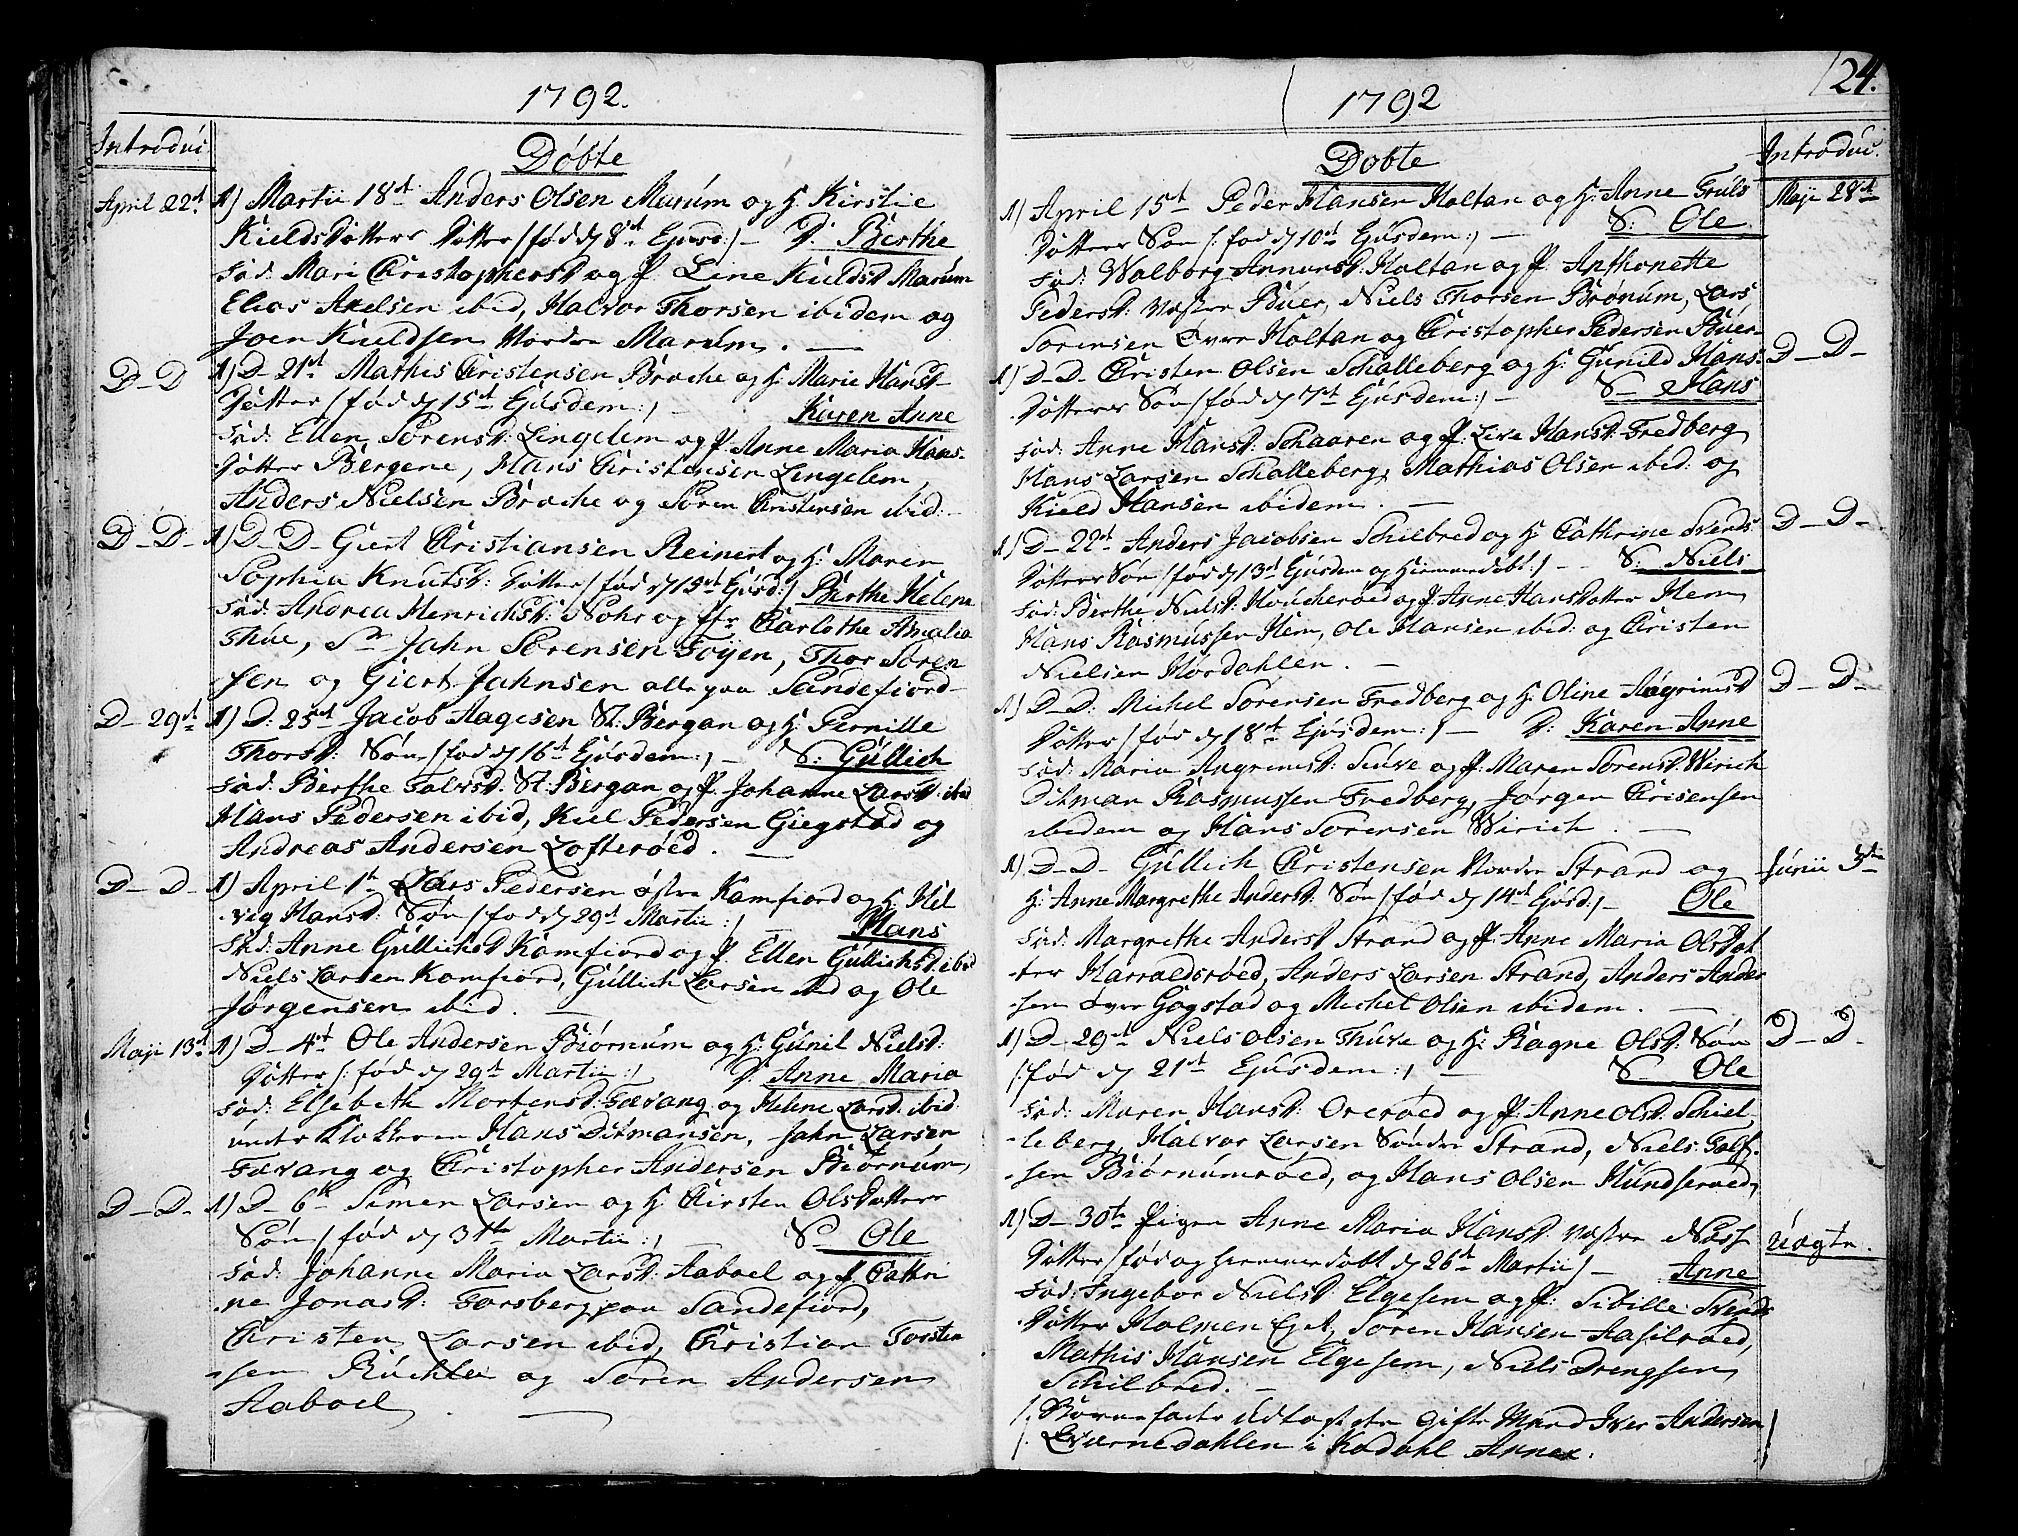 1792.
Introduc
Døbte
April 22de 1) Martii 18de Anders Olsen Marum og H. Kirstie
Kields Dotters Dotter /: fød d 8de Ejusd :/ - D: Berthe
Fad: Mari Christophersd og P. Line Kieldsd Marum
Elias Axelsen ibid, Halvor Thorsen ibidem og
Joen Kieldsen Nordre Marum. -
D - D 1) D - 21de Mathis Christensen Broche og H: Marie Hans
Dotter /: fød d 15de Ejusdem :/ - Karen Anne
Fad: Ellen Sørensd: Lingelem og P. Anne Maria Hans-
Dotter Bergene, Hans Christensen Lingelem,
Anders Nielsen Broche og Søren Christensen ibid: -
D - D - 1) D - D - Giert Christiansen Reinert og H: Maren
Sophia Knutsd: Dotter /: fød d 19de Ejusd :/ Berthe Helene
Fad: Andrea Henrichsd: Nohr og Fr Carlothe Amalia
Thue, Sr Jahn Sørensen Foyen, Thor Søren
sen og Giert Jahnsen alle paa Sandefiord -
D - 29de 1) D: 25de Jacob Aagesen St. Bergan og H: Pernille
Thorsd: Søn /: fød d 16de Ejusdem :/ - S: Gullich
Fad: Berthe Folvsd. St. Bergan og P. Johanne Larsd: ibid
Hans Pedersen ibid, Kiel Pedersen Giegstad og
Andreas Andersen Lofterøed. -
D - D - 1) April 1te Lars Pedersen østre Kamfiord og H Hel
vig Hansd: Søn /: fød d 29de Martii :/ - Hans
Fad: Anne Gullichsd Kamfiord og P. Ellen Gullichsd: ibid
Niels Larsen Kamfiord, Gullich Larsen ibid og Ole
Jørgensen ibid. -
Maji 13de 1) D - 4de Ole Andersen Biørnum og H: Gunil Nielsd:
Dotter /: fød d 29de Martii :/ D: Anne Maria
Fad: Elsebeth Mortensd: Favang og Helene Larsd: ibid
under klokkeren Hans Ditmansen, Jahn Larsen
Favang og Christopher Andersen Biørnum,
D - D - 1) D - 6te Simen Larsen og H Kirsten Olsdatters
Søn /: fød d 31te Martii :/ S - Ole
Fad: Johanne Maria Larsd: Aaboel og P. Cathri
ne Jonasd: Forsberg paa Sandefiord,
Christen Larsen ibid, Christian Torsten
sen Ruchla og Søren Andersen
Aaboel. -
1792
24.
Introduc.
Døbte
1) April 15de Peder Hansen Holtan og H: Anne Truls Maji 28de
Dotters Søn /: fød d 10de Ejusdem :/ - S: Ole
Fad: Walborg Annunsd: Holtan og P. Anthonette
Pedersd: Vestre Buer, Niels Thorsen Brønum, Lars
Sørensen Øvre Holtan og Christopher Pedersen Buer
1) D - D - Christen Olsen Schalleberg og H: Gunild Hans- D - D -
Dotters Søn /: fød d 7de Ejusdem :/ - S - Hans
Fad: Anne Hansd: Schaaren og P: Live Hansd: Fredberg
Hans Larsen Schalleberg, Mathias Olsen ibid: og
Kield Hansen ibidem. -
1) D - 22de Anders Jacobsen Schilbred og H Cathrine Svends D - D -
Dotters Søn /: fød d 13de Ejusdem og hiemmedøbt :/ - - S: Niels
Fad: Berthe Nielsd: Houcherøed og P. Anne Hansdotter Hem
Hans Rasmussen Hem, Ole Hansen ibid: og Christen
Nielsen Hordahlen. -
1) D - D: Michel Sørensen Fredberg og H: Oline Angrimsd D - D -
Dotter /: fød d 18de Ejusdem :/ - D: Karen Anne
Fad: Maria Angrimsd: Siuve og P: Maren Sørensd: Wirich
Ditman Rasmussen Fredberg, Jørgen Chrisensen
ibidem og Hans Sørensen Wirich. -
1) D - D - Gullich Christensen Nordre Strand og Junii 3de
H: Anne Margrethe Andersd: Søn /: fød d 14de Ejusd :/ - Ole
Fad: Margrethe Andersd Strand og P: Anne Maria Olsdat
ter Harraldsrøed, Anders Larsen Strand, Anders Ander
sen øvre Gogstad og Michel Olsen ibidem. -
1) D - 29de Niels Olsen Thuve og H: Ragne Olsd: Søn D - D -
/: fød d 21de Ejusdem :/ - S - Ole
Fad: Maren Hansd: Overøed og P: Anne Olsd: Schiel
leberg, Halvor Larsen Søndre Strand, Niels Tolf-
sen Biørnumrøed, og Hans Olsen Hundserøed,
1) D - 30te Pigen Anne Maria Hansd: Vestre Nøss uægte.
Dotter /: fød og hiemmedøbt d 26de Martii :/ - Anne
Fad: Ingebor Nielsd: Elgesem og P: Sibille Svends
Dotter Holmen Eget, Søren Hansen Aasilrøed,
Mathis Hansen Elgesem, Niels Drengsen
Schilbred. -
/: Barnefader Udlagdte gifte Mand Iver Andersen
/: Lværnedahlen i Kodahl Annex.